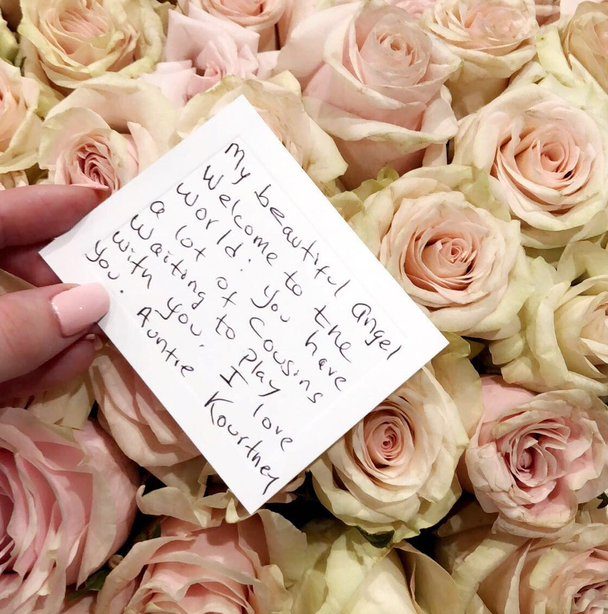 My beautiful angel
Welcome to the
World. You have
a lot of cousins
Waiting to play
with you. I love
you.
Auntie Kourtney